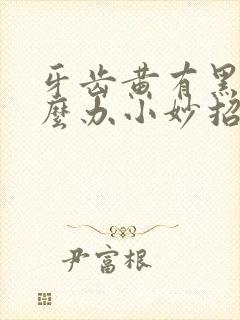 牙齿黄有黑
麼办小妙招
尹富根